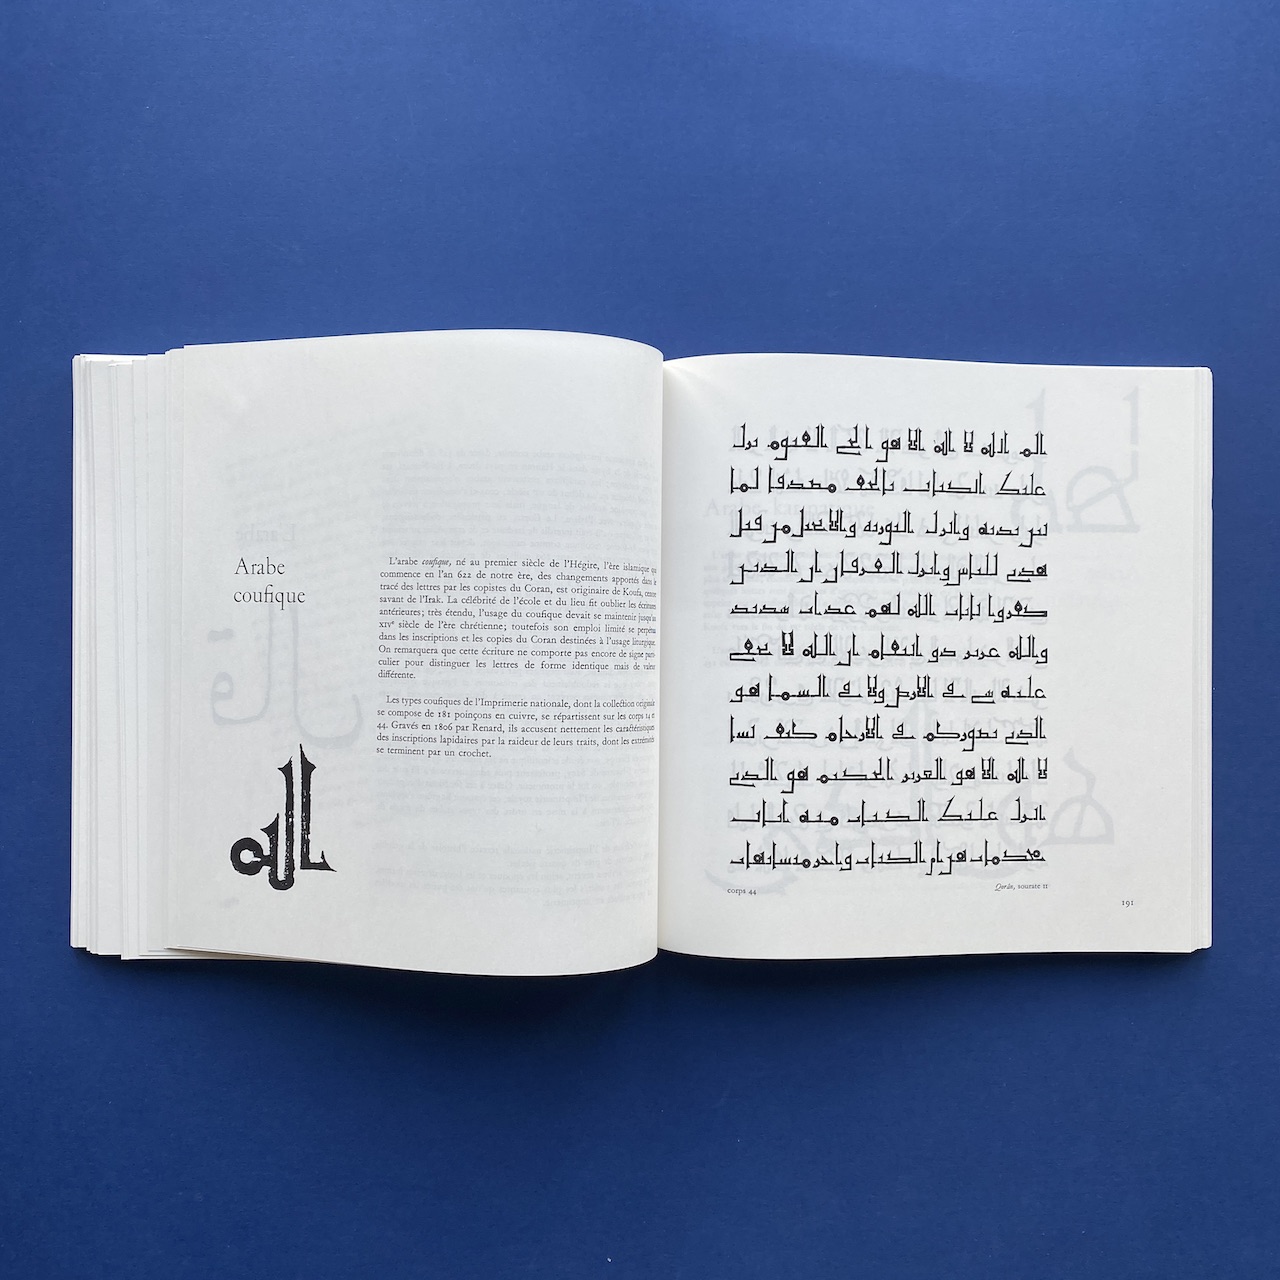 Arabe
coufique
L'arabe coufique, né au premier siècle de l'Hégire, l'ère islamique qui
commence en l'an 622 de notre ère, des changements apportés dans le
tracé des lettres par les copistes du Coran, est originaire de Koufa, centre
savant de l'Irak. La célébrité de l'école et du lieu fit oublier les écritures
antérieures; très étendu, l'usage du coufique devait se maintenir jusqu'au
XIVe siècle de l'ère chrétienne; toutefois son emploi limité se perpétua
dans les inscriptions et les copies du Coran destinées à l'usage liturgique.
On remarquera que cette écriture ne comporte pas encore de signe parti-
culier pour distinguer les lettres de forme identique mais de valeur
différente.
Les types coufiques de l'Imprimerie nationale, dont la collection originale
se compose de 181 poinçons en cuivre, se répartissent sur les corps 24 et
44. Gravés en 1806 par Renard, ils accusent nettement les caractéristiques
des inscriptions lapidaires par la raideur de leurs traits, dont les extrémités
se terminent par un crochet.
الله
الم الله لا اله الا هو الحى القيوم نزل
عليك الكتاب بالحق مصدقا لما
بين يديه وانزل التورية والانجيل من قبل
هدى للناس وانزل الفرقان ان الذين
كفروا بايات الله لهم عذاب شديد
والله عزيز ذو انتقام ان الله لا يخفى
عليه شى فى الارض ولا فى السما هو
الذى يصوركم فى الارحام كيف يشا
لا اله الا هو العزيز الحكيم هو الذى
انزل عليك الكتاب منه ايات
محكمات هن ام الكتاب واخر متشابهات
corps 44
Qorân, sourate II
191